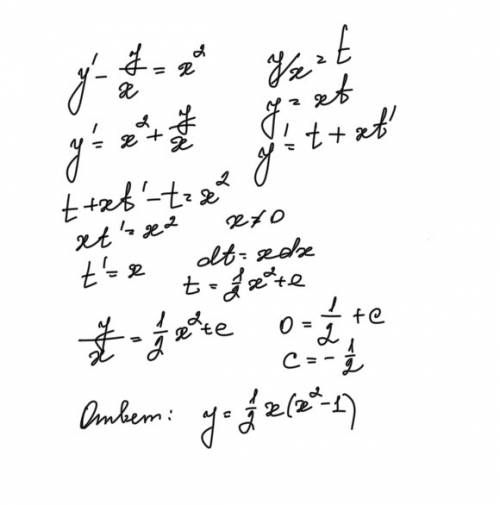 y' - y/x = x²
y/x = t
y = xt
y' = x² + y/x
y' = t + xt'
t + xt' - t = x²
xt' = x²
x ≠ 0
t' = x
dt = xdx
t = 1/2 x² + c
y/x = 1/2 x² + c
0 = 1/2 + c
C = - 1/2
Ответ: y = 1/2 x(x² - 1)